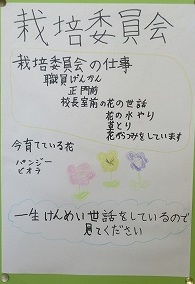 栽培委員会
栽培委員会の仕事
職員げんかん
正門前
校長室前の花の世話
花の水やり
草とり
花がらつみをしています
今育てている花
パンジー
ビオラ
一生けんめい世話をしているので
見てください